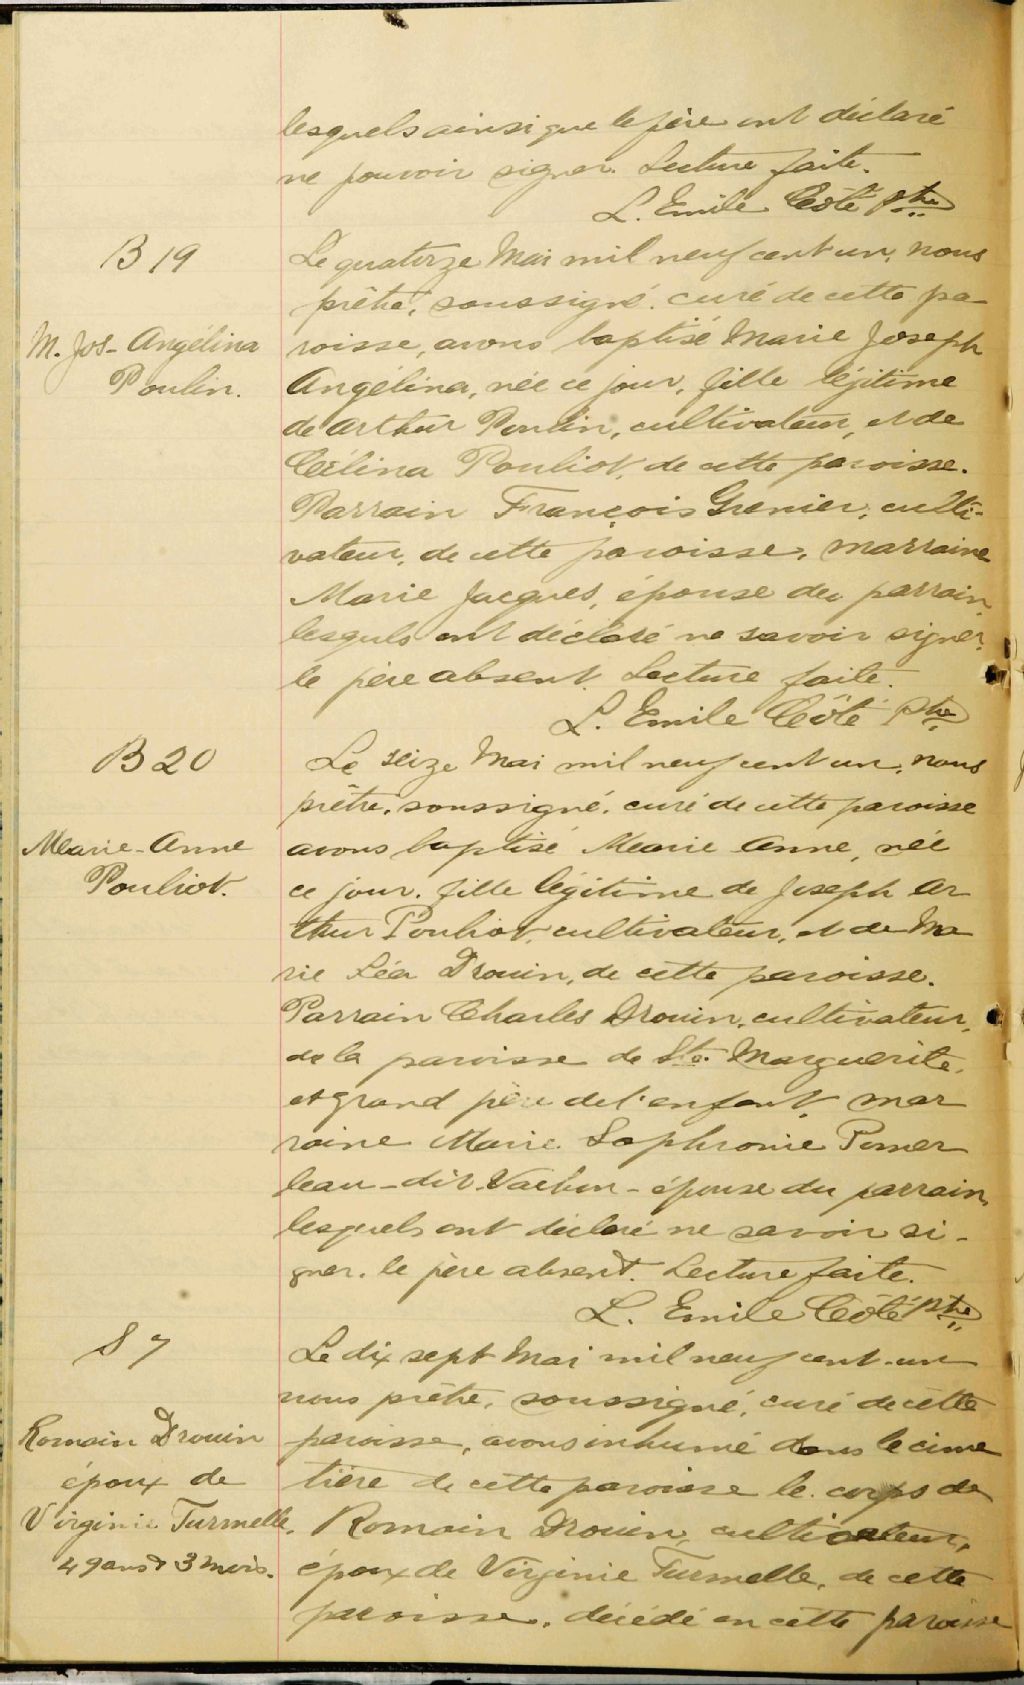 lesquels ainsi que le père ont déclaré
ne pouvoir signer. Lecture faite.
L. Emile Côté ptre
B 19
Le quatorze Mai mil neuf cent un, nous
prêtre, soussigné, curé de cette pa-
M. Jos- Angélina
roisse, avons baptisé Marie Joseph
Poulin.
Angélina, née ce jour, fille légitime
de Arthur Poulin, cultivateur, et de
Célina Pouliot, de cette paroisse.
Parrain François Grenier, culti-
vateur, de cette paroisse, marraine
Marie Jacques, épouse du parrain,
lesquels ont déclaré ne savoir signer,
le père absent. Lecture faite.
L. Emile Côté Ptre
B 20
Le seize Mai mil neuf cent un, nous
prêtre, soussigné, curé de cette paroisse
Marie-Anne
avons baptisé Marie Anne, née
Pouliot.
ce jour, fille légitime de Joseph Ar
thur Pouliot, cultivateur, et de Ma
rie Léa Drouin, de cette paroisse.
Parrain Charles Drouin, cultivateur,
de la paroisse de Ste. Marguerite,
et grand père de l'enfant, mar
raine Marie Sophronie Pomer
leau-dit-Vachon- épouse du parrain,
lesquels ont déclaré ne savoir si-
gner. le père absent. Lecture faite.
L. Emile Côté Ptre
S 7
Le dix sept Mai mil neuf cent-un
nous prêtre, soussigné, curé de cette
Romain Drouin
paroisse, avons inhumé dans le cime
époux de
tière de cette paroisse le corps de
Virginie Turmelle,
Romain Drouin, cultivateur,
49 ans & 3 mois.
époux de Virginie Turmelle, de cette
paroisse, décédé en cette paroisse